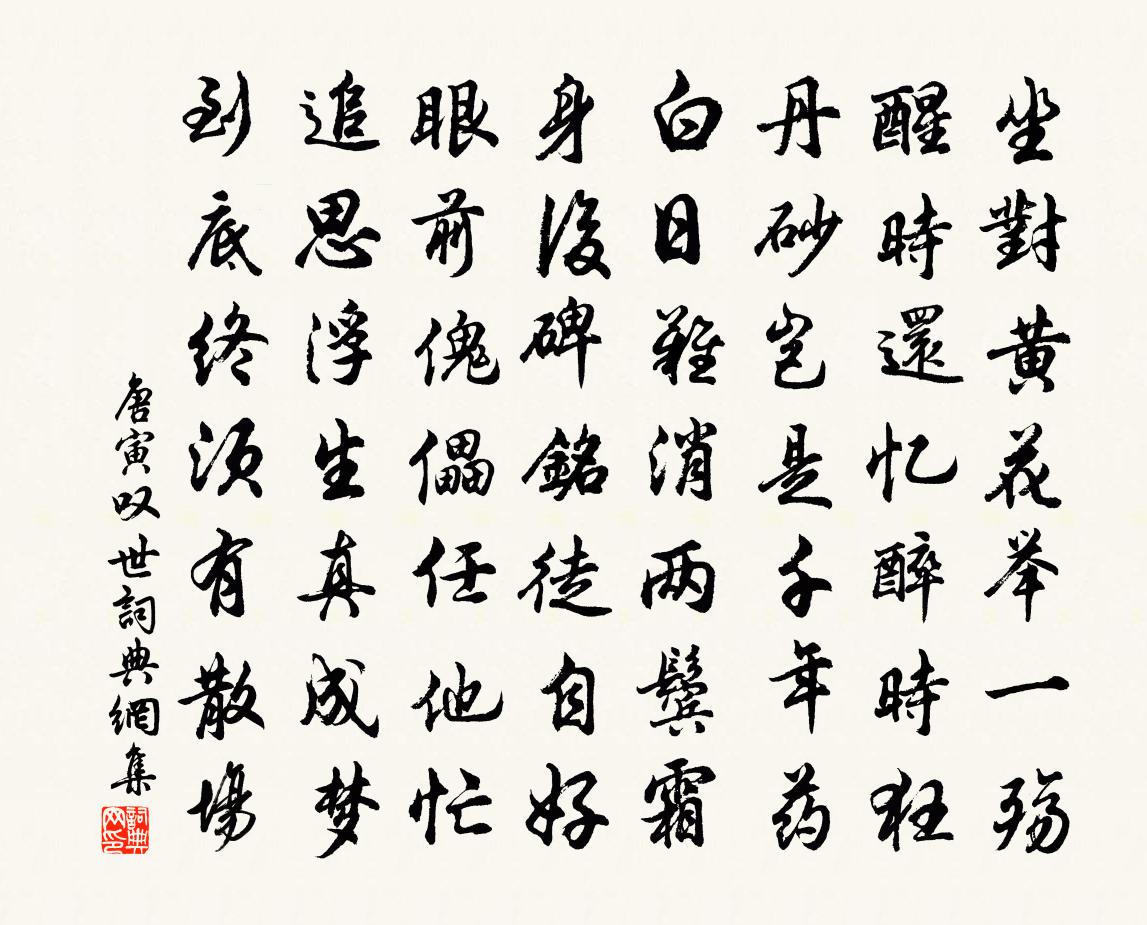 坐對黃花举一殤
醒時還忆醉時狂
丹砂岂是千年药
白日難消两鬓霜
身後碑銘徒自好
眼前傀儡任他忙
追思浮生真成梦
到底终须有散場
唐寅叹世詞典網集
詞典网印